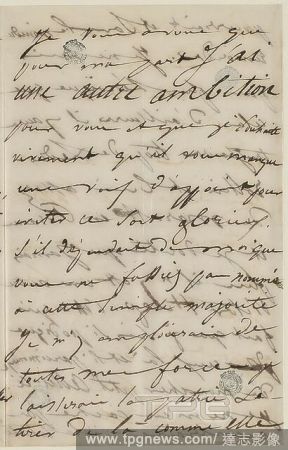 Je vous avoue que
pour ma part j'ai
une autre ambition
pour vous et que je souhaite
vivement qu'il vous manque
une voix d'appoint pour
éviter ce sort glorieux
s'il dépendait de moi que
vous ne fussiez pas nommé
à cette simple majorité
je m'y emploierais de
toutes mes forces
laisserais la patrie se
tirer de là comme elle
TPG
www.tpgnews.com / 達志影像